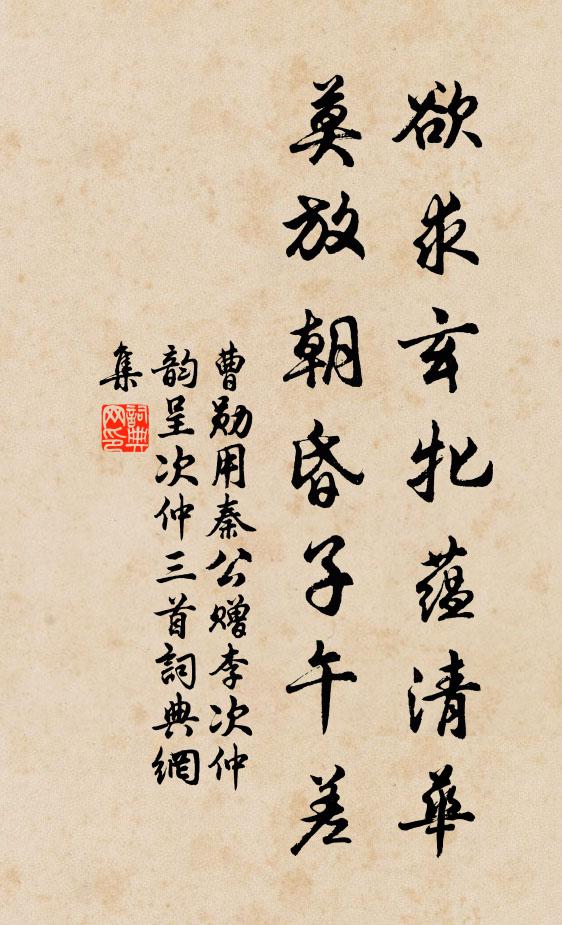 欲求玄牝蕴清華
莫放朝昏子午差
曹勛用秦公贈李次仲
韵呈次仲三首詞典網
集
詞典
网印